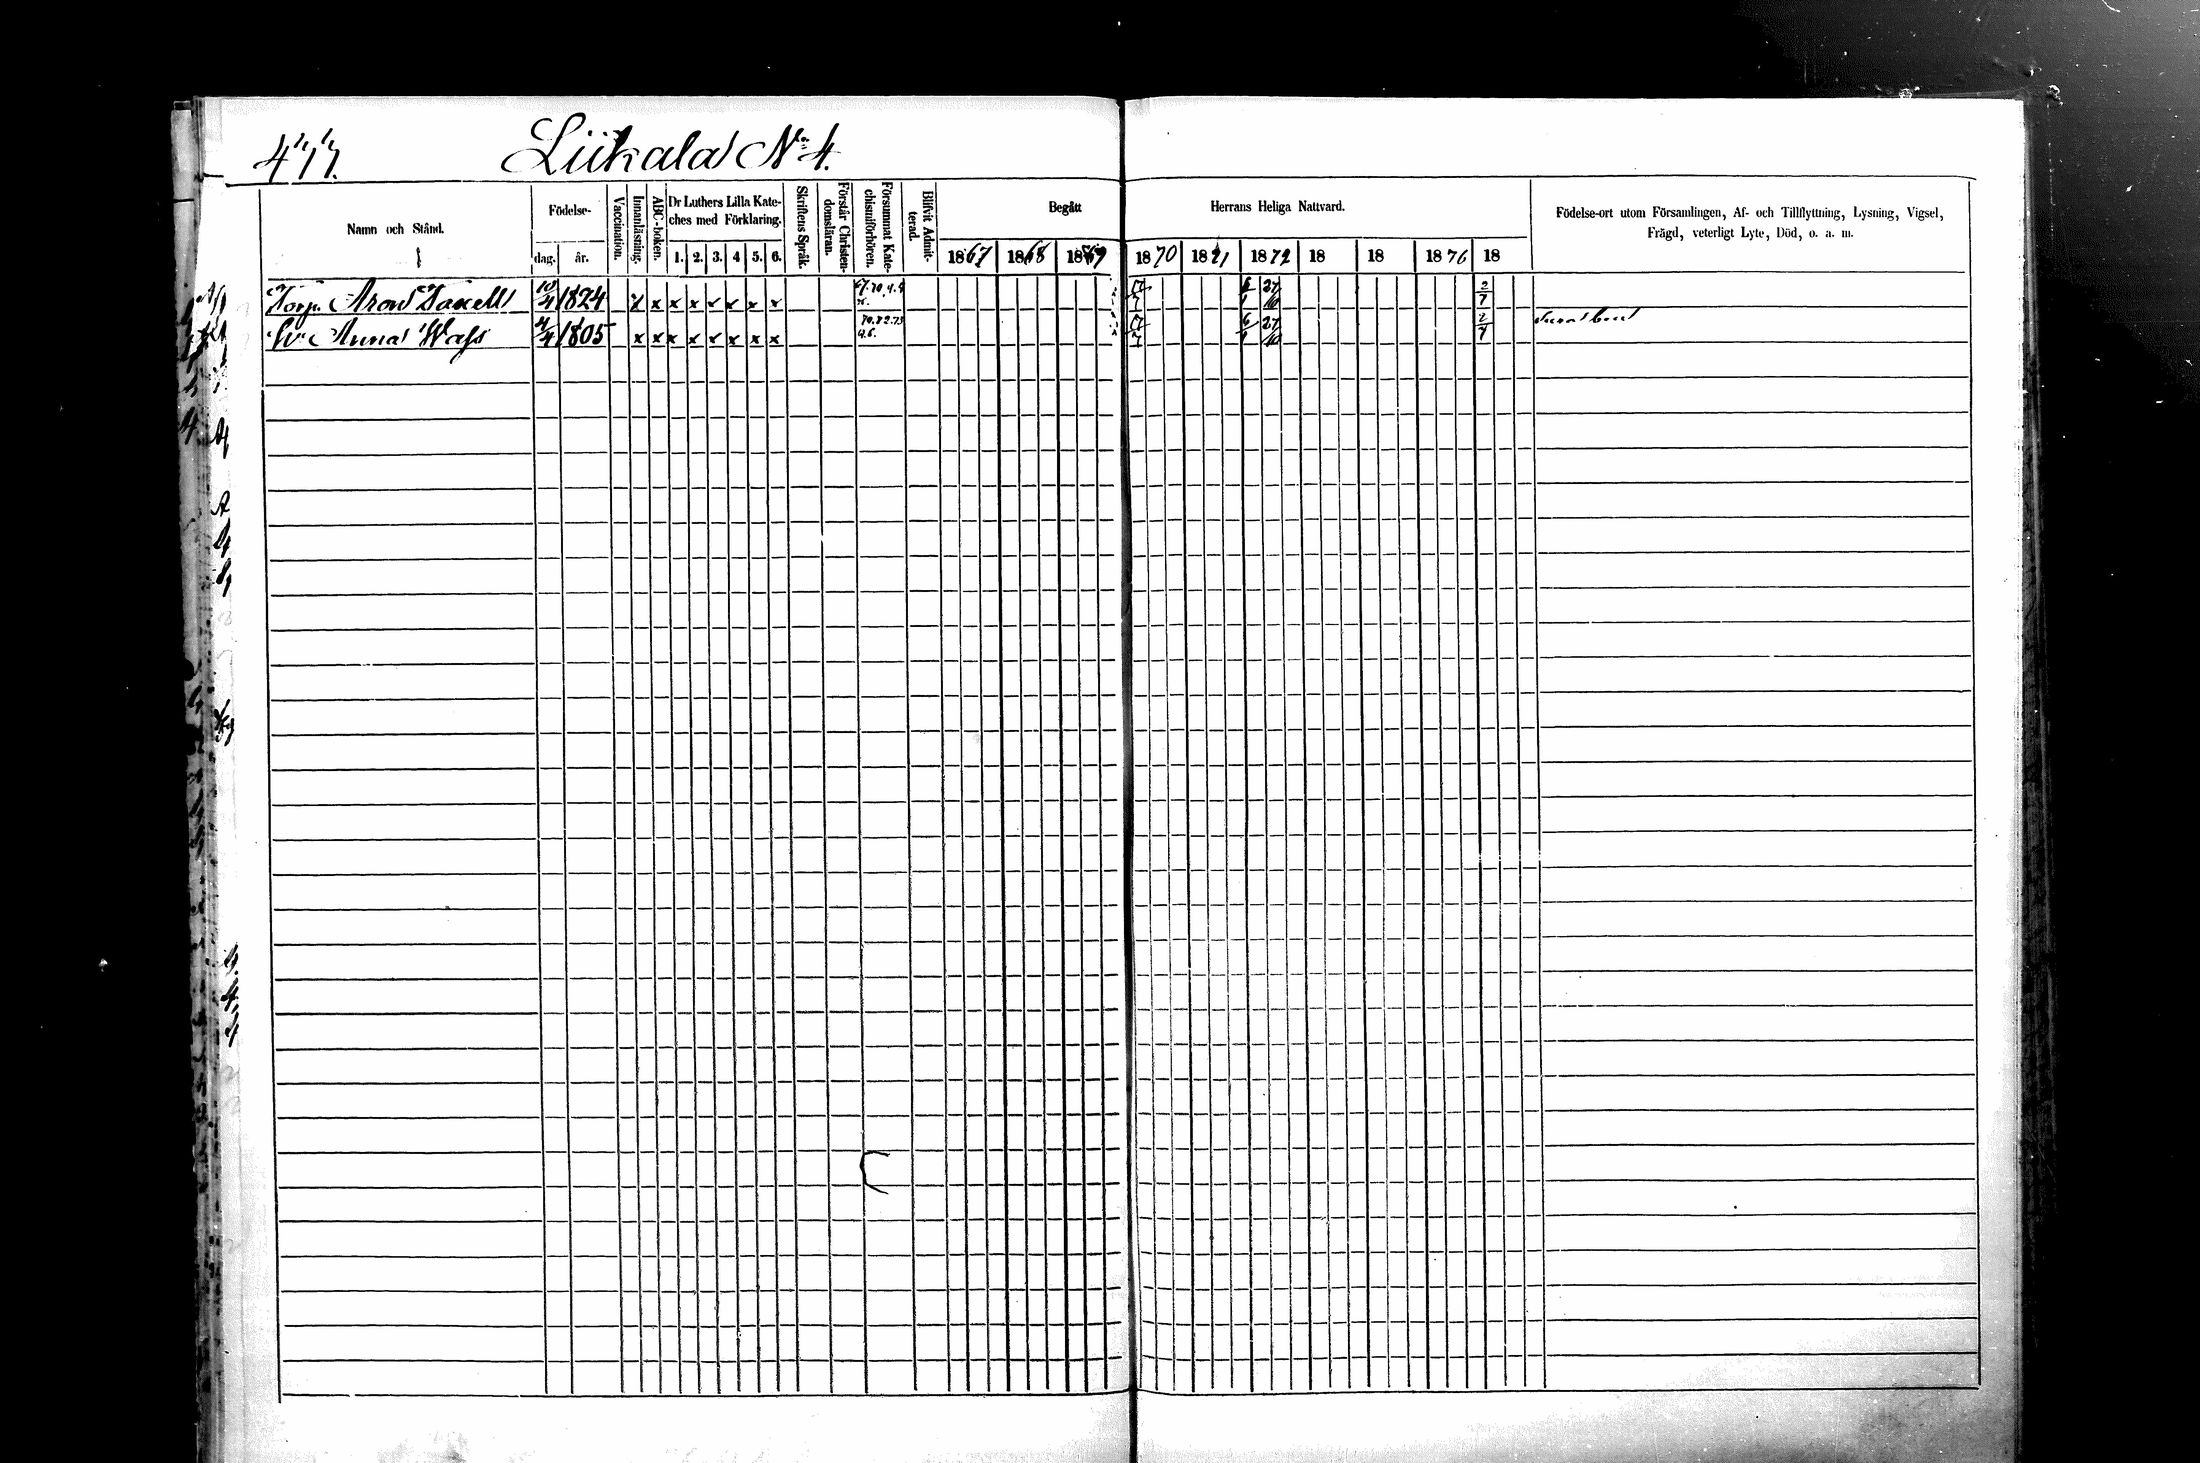 477.
Liikala No 4.
Namn och Stånd.
Födelse-
dag.
år.
Vaccination.
Innanläsning.
ABC-boken.
Dr Luthers Lilla Kate-
ches med Förklaring.
1. 2. 3. 4 5. 6.
Skriftens Språk.
Förstår Christen-
domsläran.
Försummat Kate-
chismiförhören.
Blifvit Admit-
terad.
Begått
Herrans Heliga Nattvard.
1867 1868 1869 1870 1871 1872 18 18 1876 18
Födelse-ort utom Församlingen, Af- och Tillflyttning, Lysning, Vigsel,
Frägd, veterligt Lyte, Död, o. a. m.
Torp. Aron Taxell 10/4 1824 x x x x x x x x 6/1 27/10 2/7
Anna Wass 4/4 1805 x x x x x x x x 70.72.73 6/1 27/10 2/7